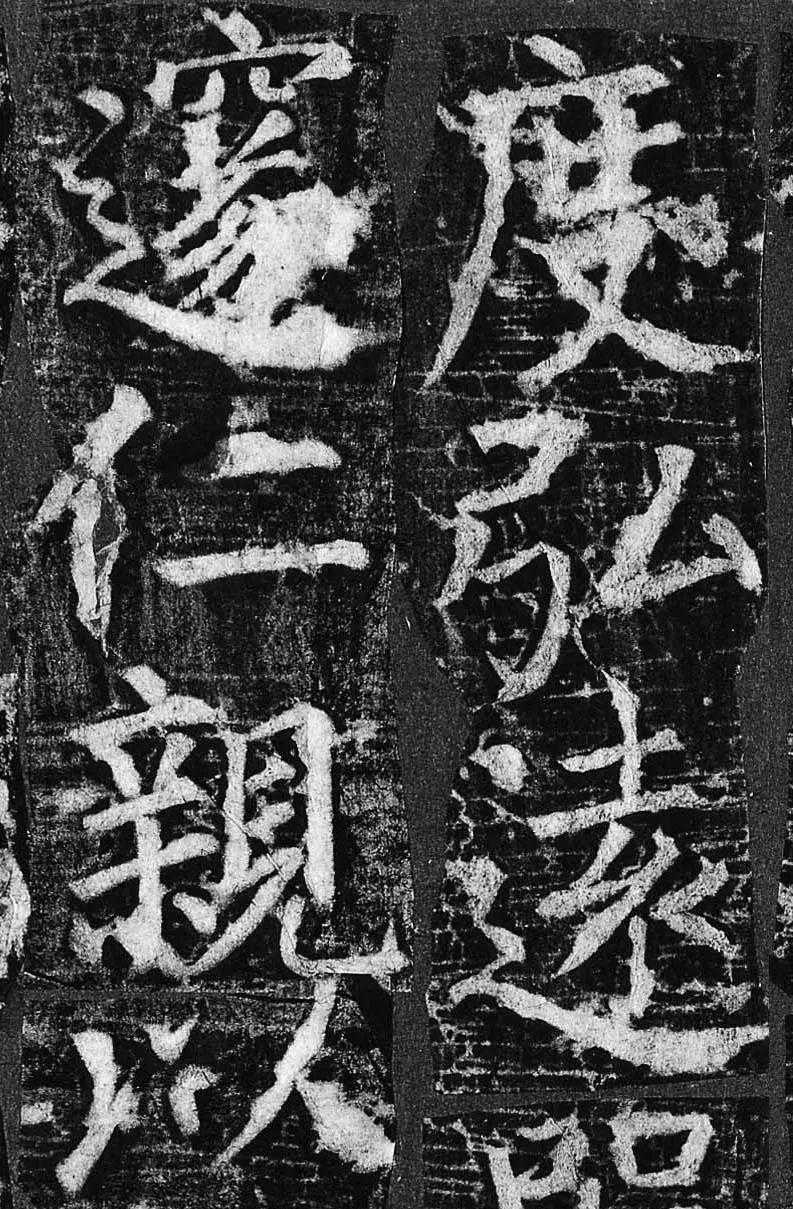 度弘遠
邃仁親以